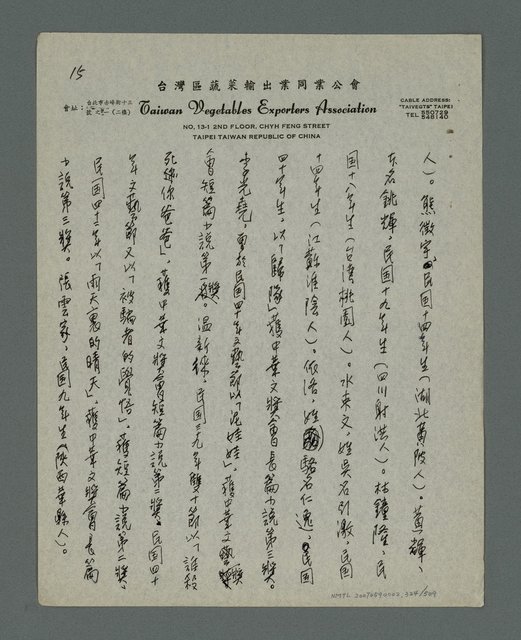 15
台灣區蔬菜輸出業同業公會
會址：台北市赤峰街十三號之一(二樓)
Taiwan Vegetables Exporters Association
CABLE ADDRESS:
"TAIVEGTS" TAIPEI
TEL 550729
546140
NO. 13-1 2ND FLOOR, CHYH FENG STREET
TAIPEI TAIWAN REPUBLIC OF CHINA
人）。熊徵宇，民國十四年生（湖北黃陂人）。黃輝，
本名銚輝，民國十九年生（四川射洪人）。林鐘隆，民
國十八年生（台灣桃園人）。水束文，姓吳名引漱，民國
十四年生（江蘇淮陰人）。依洛，姓駱名仁逸，民國
四十年生，以「歸隊」獲中華文獎會長篇小說第三獎。
光堯，曾於民國四十年文藝節以「泥娃娃」，獲中華文藝獎
會短篇小說第一獎。溫新綠，民國三九年雙十節以「誰殺
死你爸爸」，獲中華文獎會短篇小說第二獎。民國四十
年文藝節又以「被騙者的覺悟」，獲短篇小說第二獎。
民國四十一年以「雨天裏的晴天」，獲中華文獎會長篇
小說第三獎。張雲家，民國九年生（陝西華縣人）。
NMTL 20070590002, 324/509